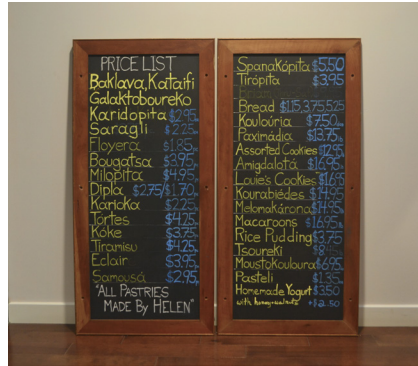 PRICE LIST
Baklava, Kataifi
Galaktoboureko
Karidopita $2.95
Saragli $2.25
Floyera $1.85
Bougatsa $3.95
Milopita $4.95
Dipla $2.75/$1.70
Karioka $2.25
Tórtes $4.25
Kóke $3.75
Tiramisu $4.25
Eclair $3.95
Samousá $2.95
"ALL PASTRIES
MADE BY HELEN"
Spanakópita $5.50
Tirópita $3.95
Bread
Kouloúria $7.50
Paximádia $13.75
Assorted Cookies 12.95
Amigdalotá $16.95
Louie's Cookies $16.95
Kourabiédes $14.95
Melomakárona $14.95
Macaroons $16.95
Rice Pudding $3.75
Tsoureki
Moustokouloura $6.95
Pasteli $1.35
Homemade Yogurt $3.50
with honey +$2.50